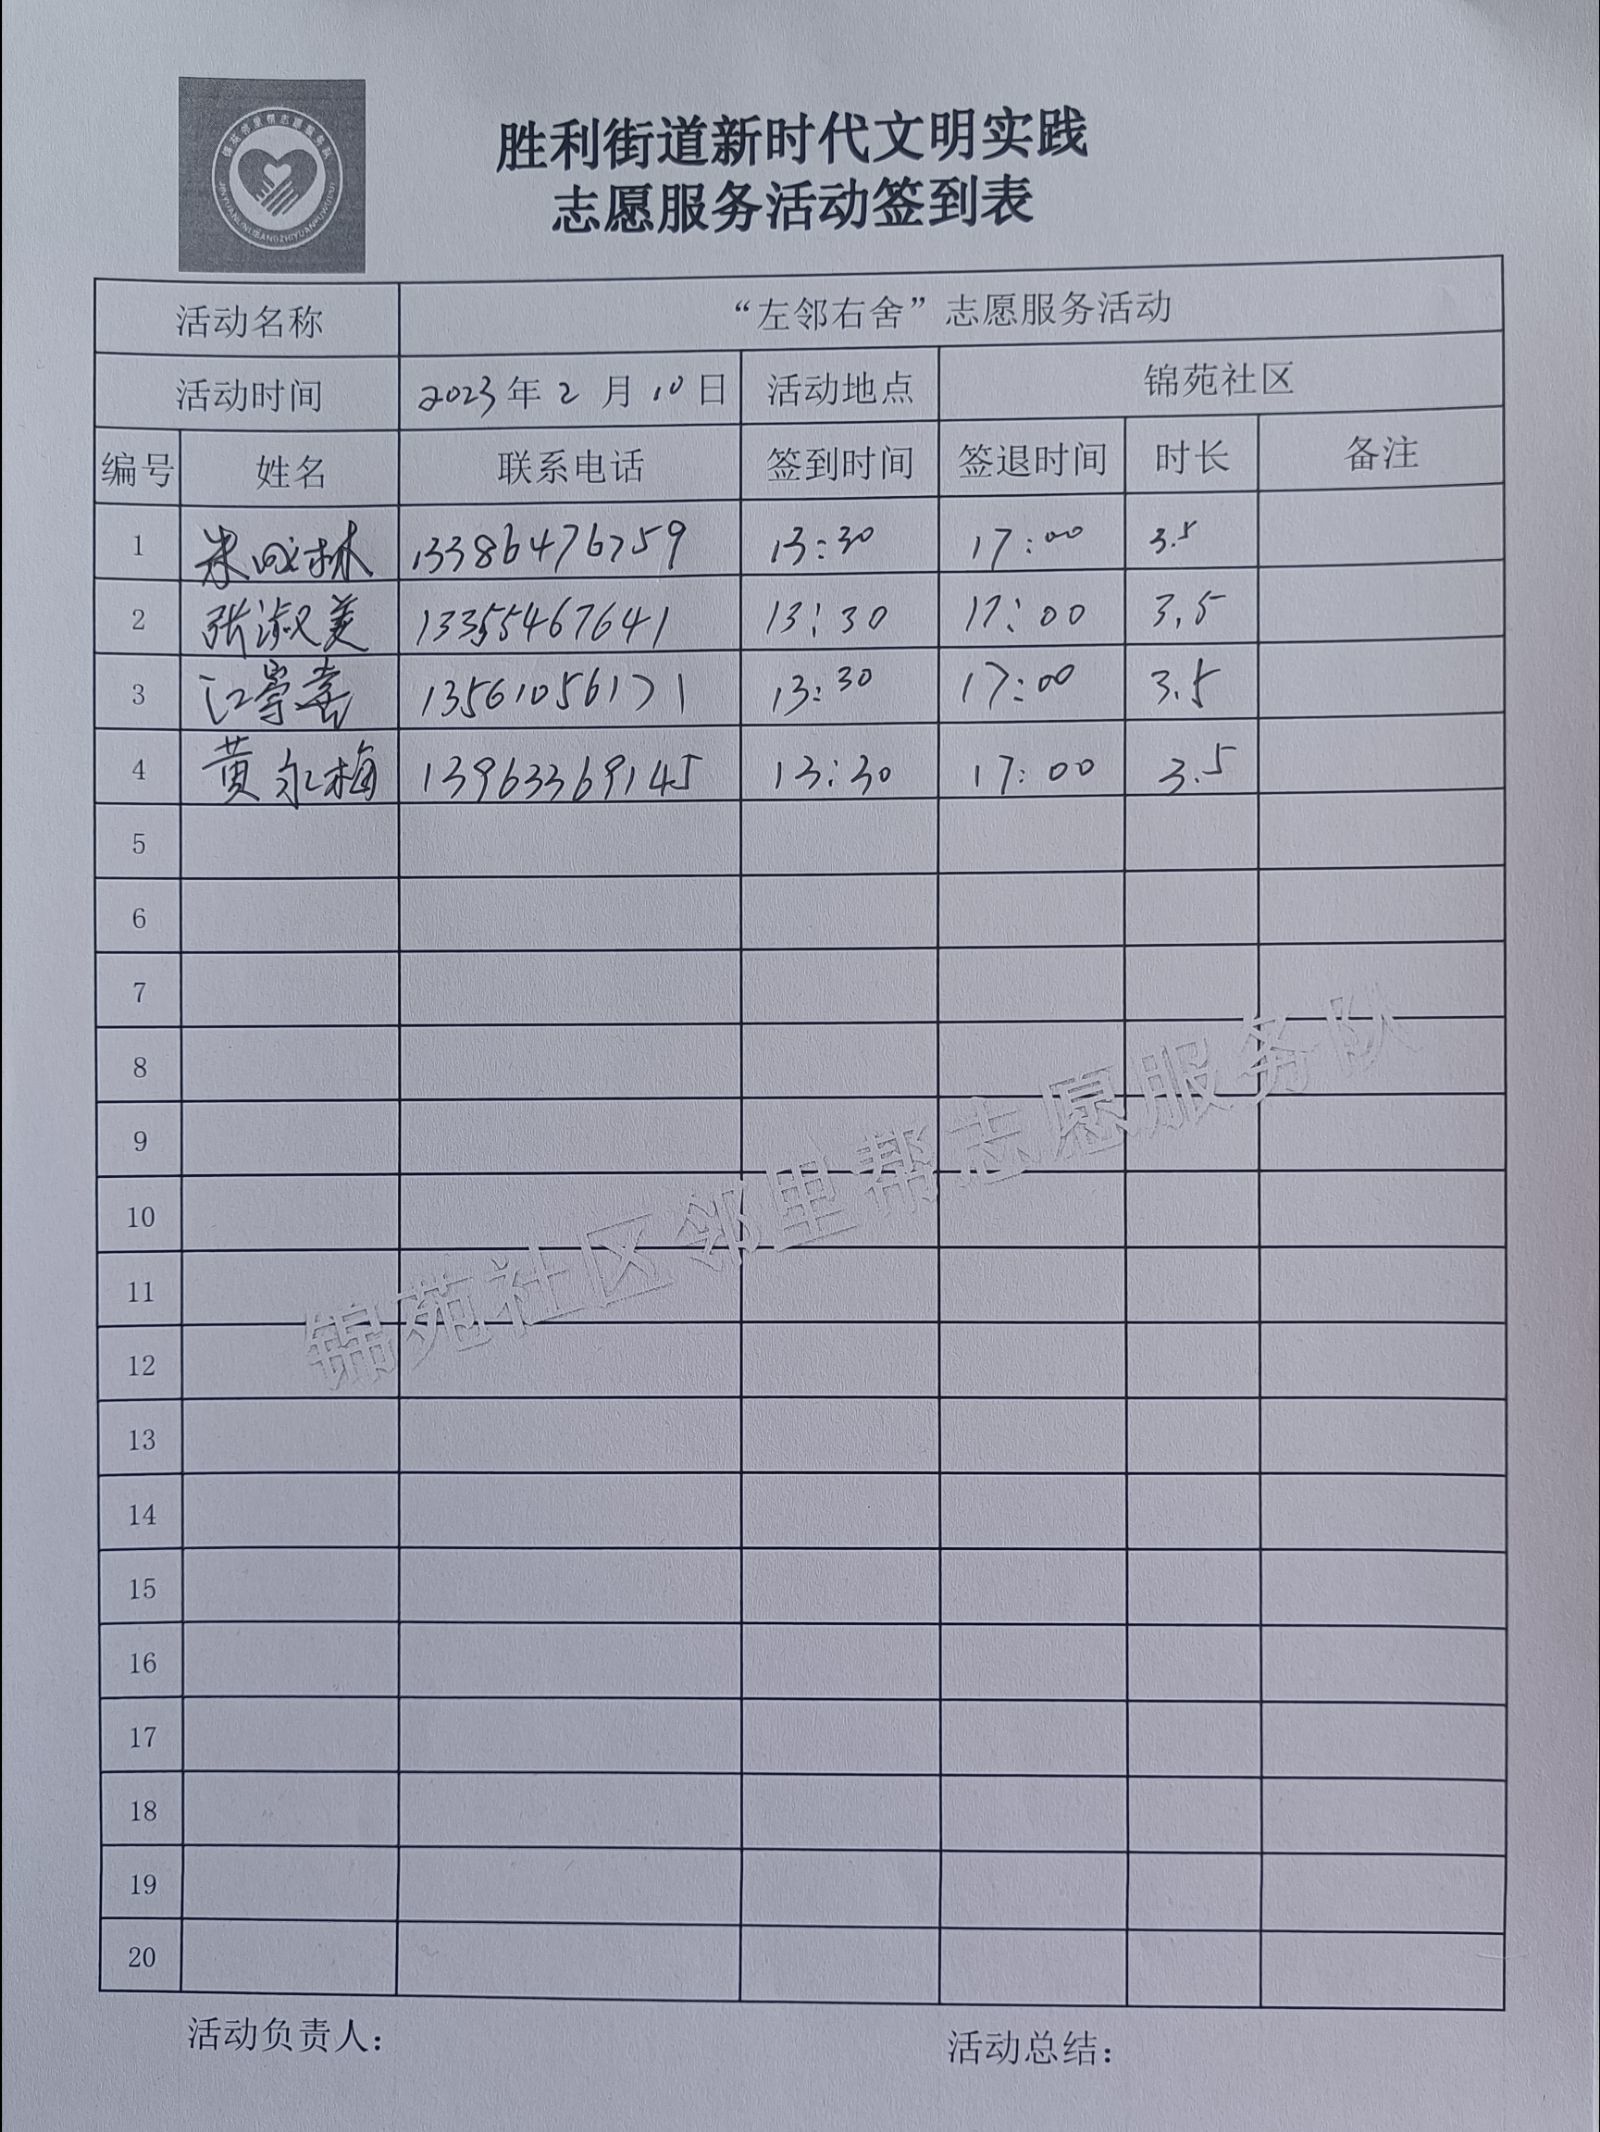 锦苑邻里帮志愿服务队
胜利街道新时代文明实践
志愿服务活动签到表
活动名称 “左邻右舍”志愿服务活动
活动时间 2023年2月10日 活动地点 锦苑社区
编号 姓名 联系电话 签到时间 签退时间 时长 备注
1 林 13386476759 13:30 17:00 3.5
2 张淑美 13355467641 13:30 17:00 3.5
3 江 13561056171 13:30 17:00 3.5
4 黄永梅 13963369145 13:30 17:00 3.5
5
6
7
8
9
10
11
12
13
14
15
16
17
18
19
20
锦苑社区邻里帮志愿服务队
活动负责人： 活动总结：